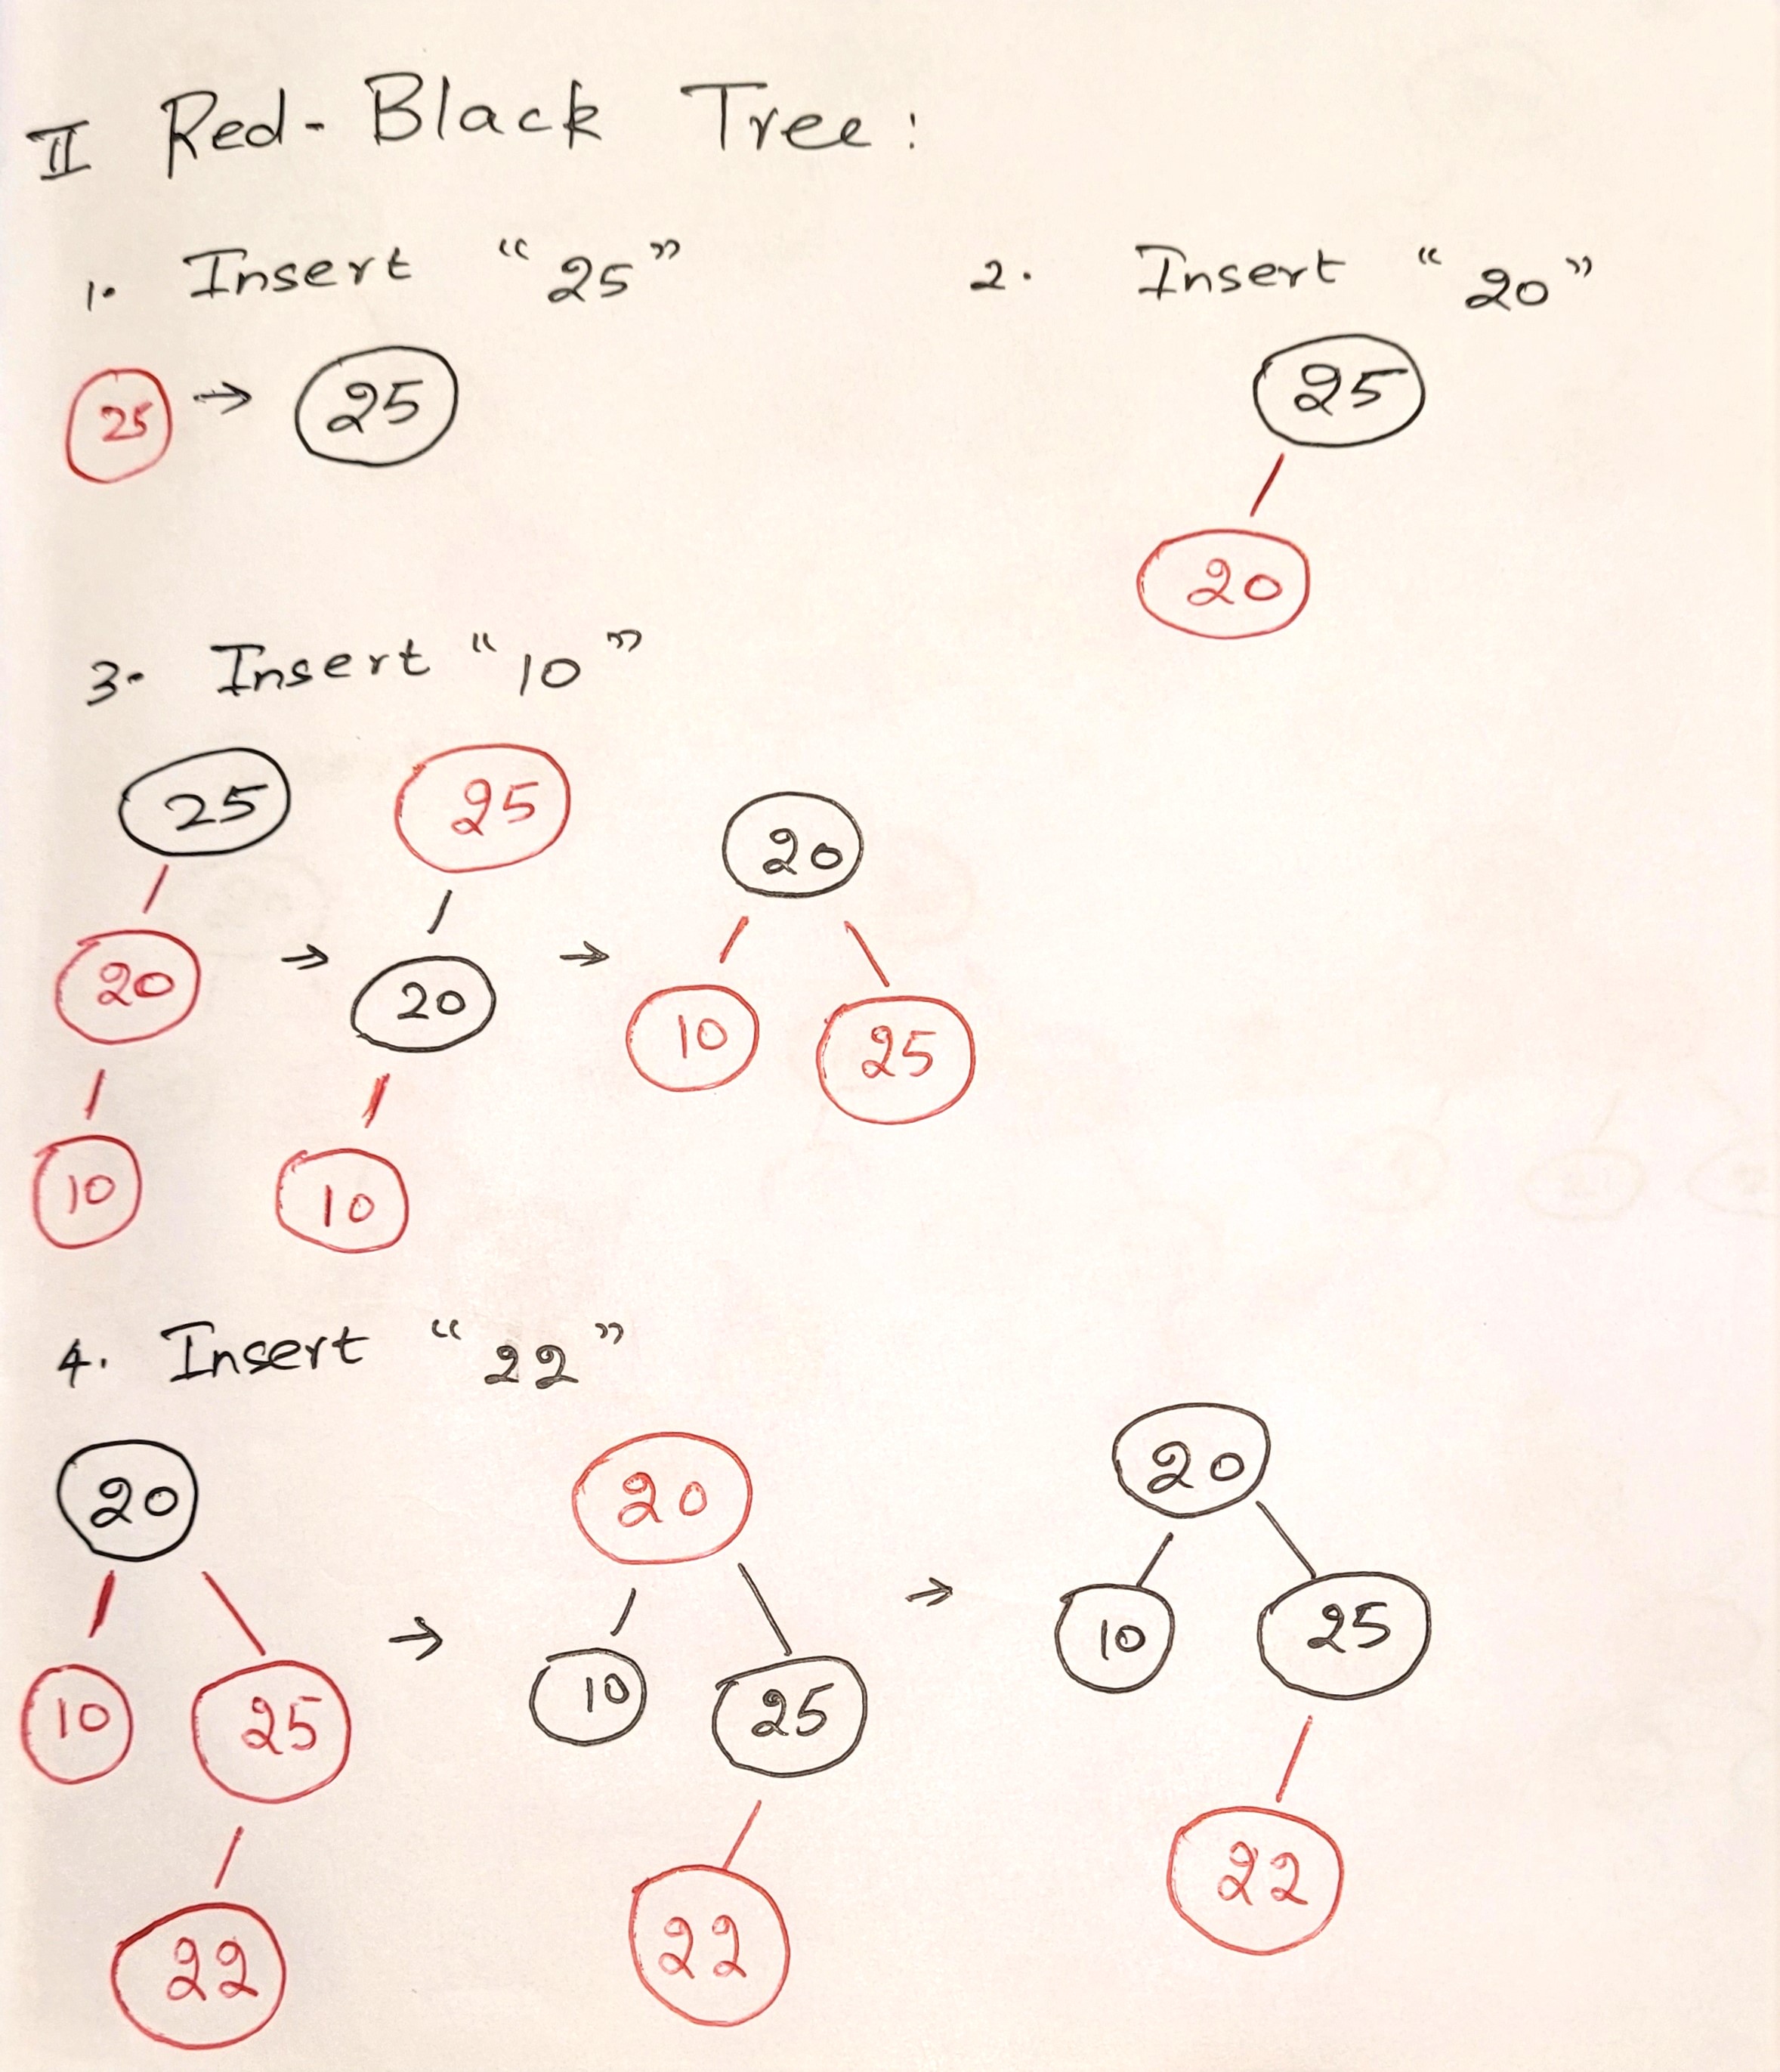 II Red-Black Tree:
1. Insert "25"
25 → 25
2. Insert "20"
25
20
3. Insert "10"
25 25 20
20 → 20 → 10 25
10 10
4. Insert "22"
20 20 20
10 25 → 10 25 → 10 25
22 22 22